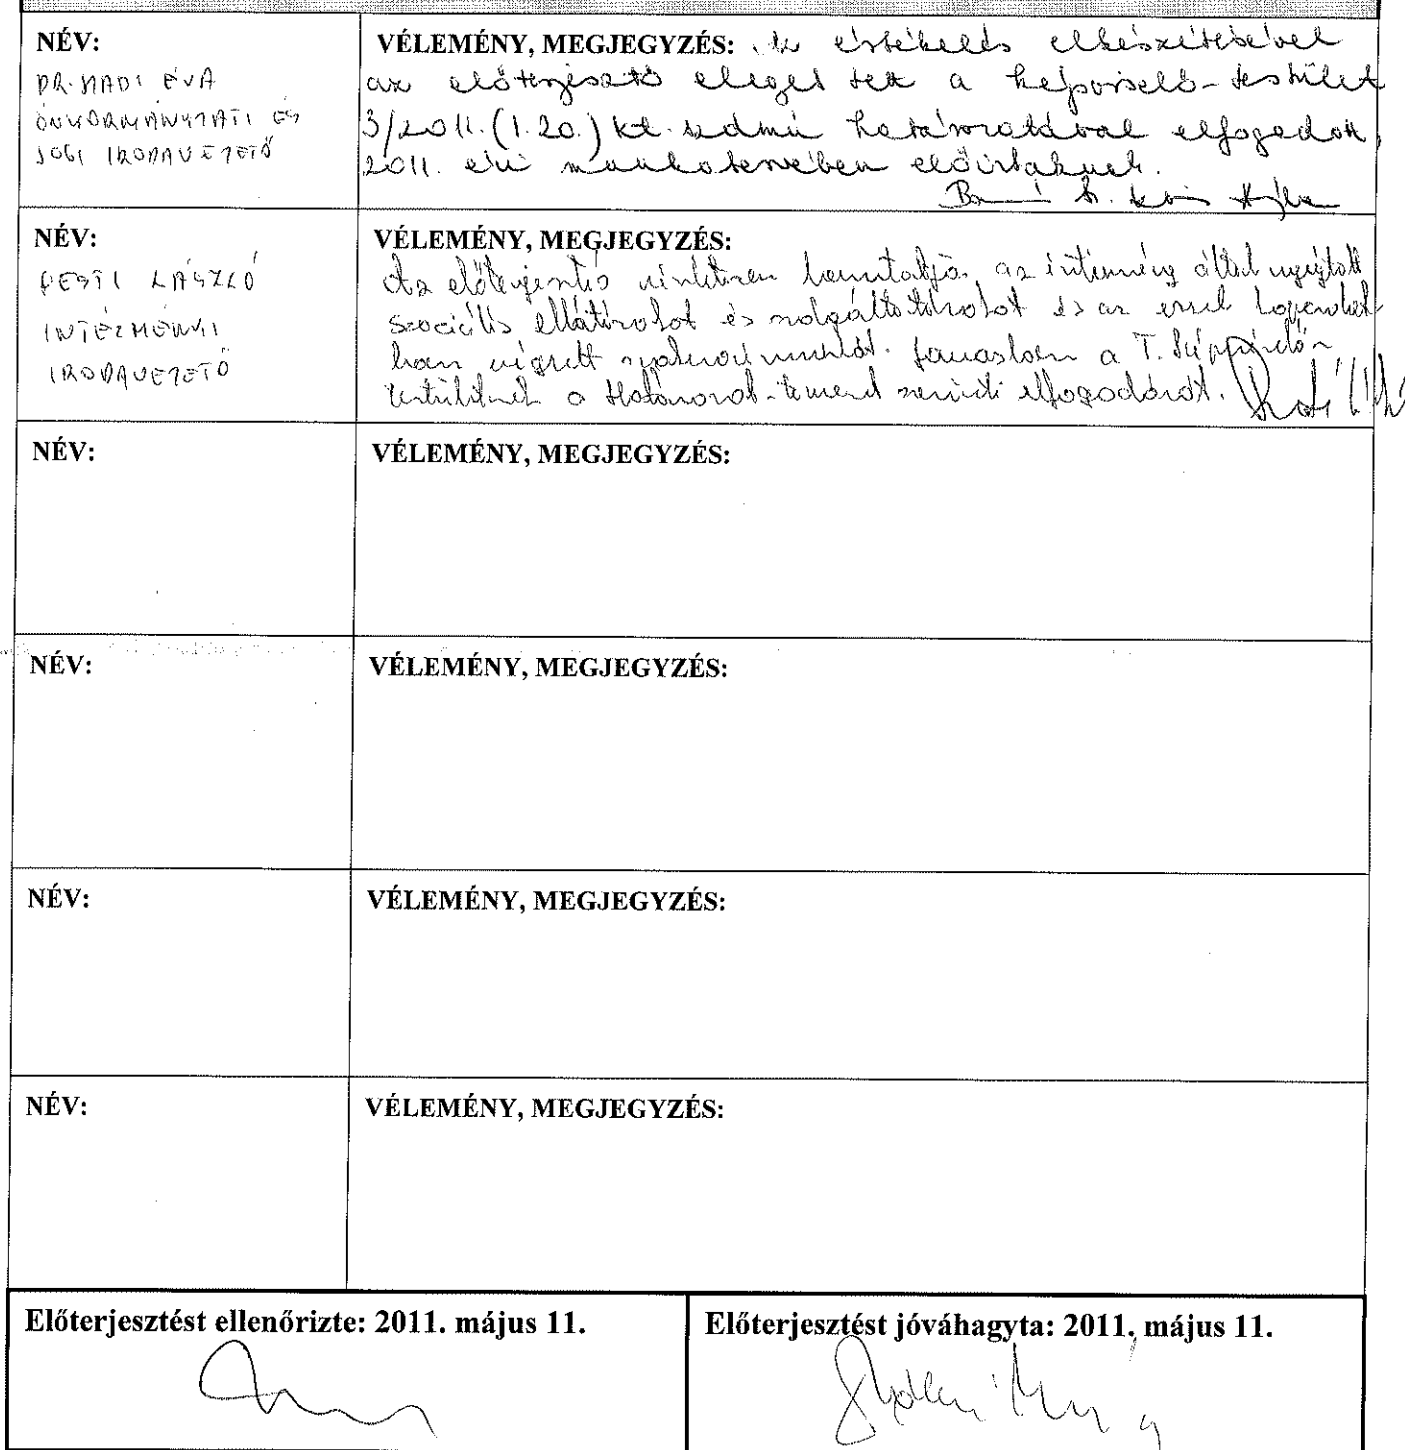 NÉV:
DR. MADI ÉVA
ÖNKORMÁNYZATI ÉS
JOGI IRODAVEZETŐ
VÉLEMÉNY, MEGJEGYZÉS: Az értékelés elkészítésével
az előterjesztő eleget tett a képviselő-testület
3/2011. (1. 20.) kt. számú határozatával elfogadott,
2011. évi munkatervében előírtaknak.
NÉV:
PESTI LÁSZLÓ
INTÉZMÉNYI
IRODAVEZETŐ
VÉLEMÉNY, MEGJEGYZÉS:
Az előterjesztés bemutatja az intézmény által nyújtott
szociális ellátásokat és szolgáltatásokat és az ezzel kapcsolat
ban végzett szakmai munkát. Javaslom a T. Képviselő-
testületnek a Határozat-tervezet szerinti elfogadását.
NÉV:
VÉLEMÉNY, MEGJEGYZÉS:
NÉV:
VÉLEMÉNY, MEGJEGYZÉS:
NÉV:
VÉLEMÉNY, MEGJEGYZÉS:
NÉV:
VÉLEMÉNY, MEGJEGYZÉS:
Előterjesztést ellenőrizte: 2011. május 11.
Előterjesztést jóváhagyta: 2011. május 11.